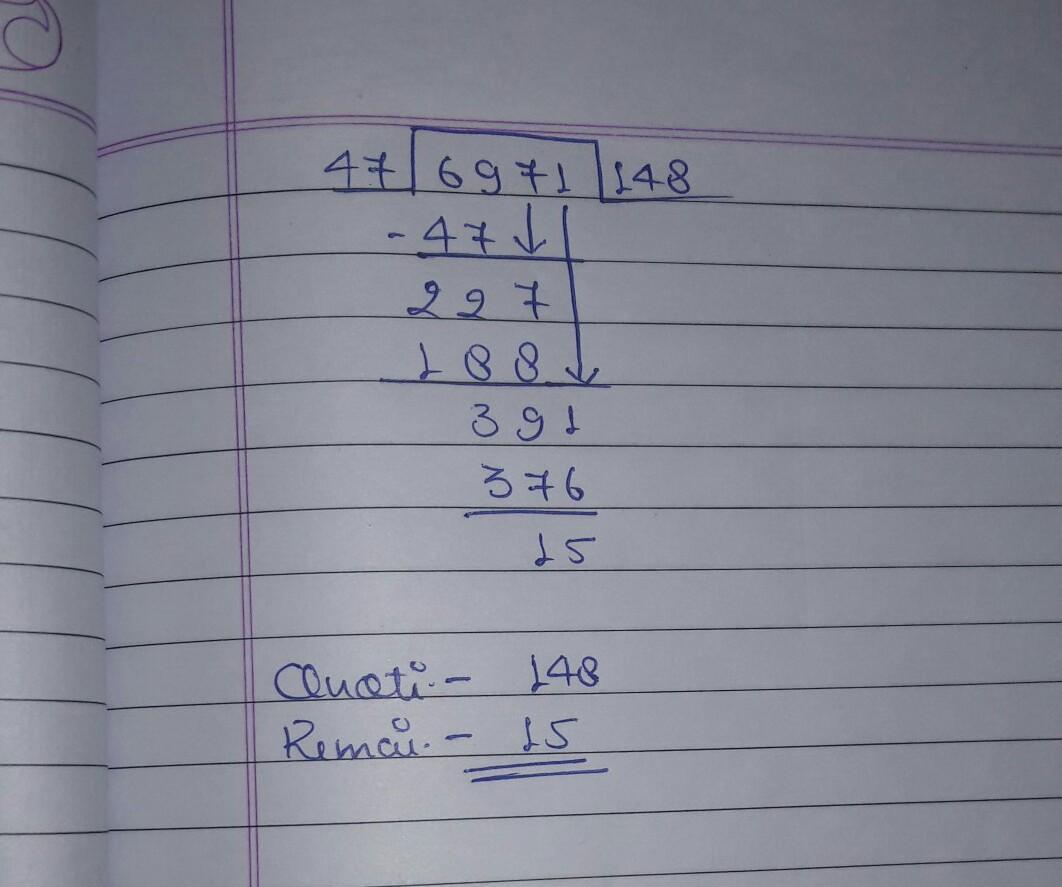 47 6971 148
- 47
227
188
391
376
15
Quoti. - 148
Remai. - 15